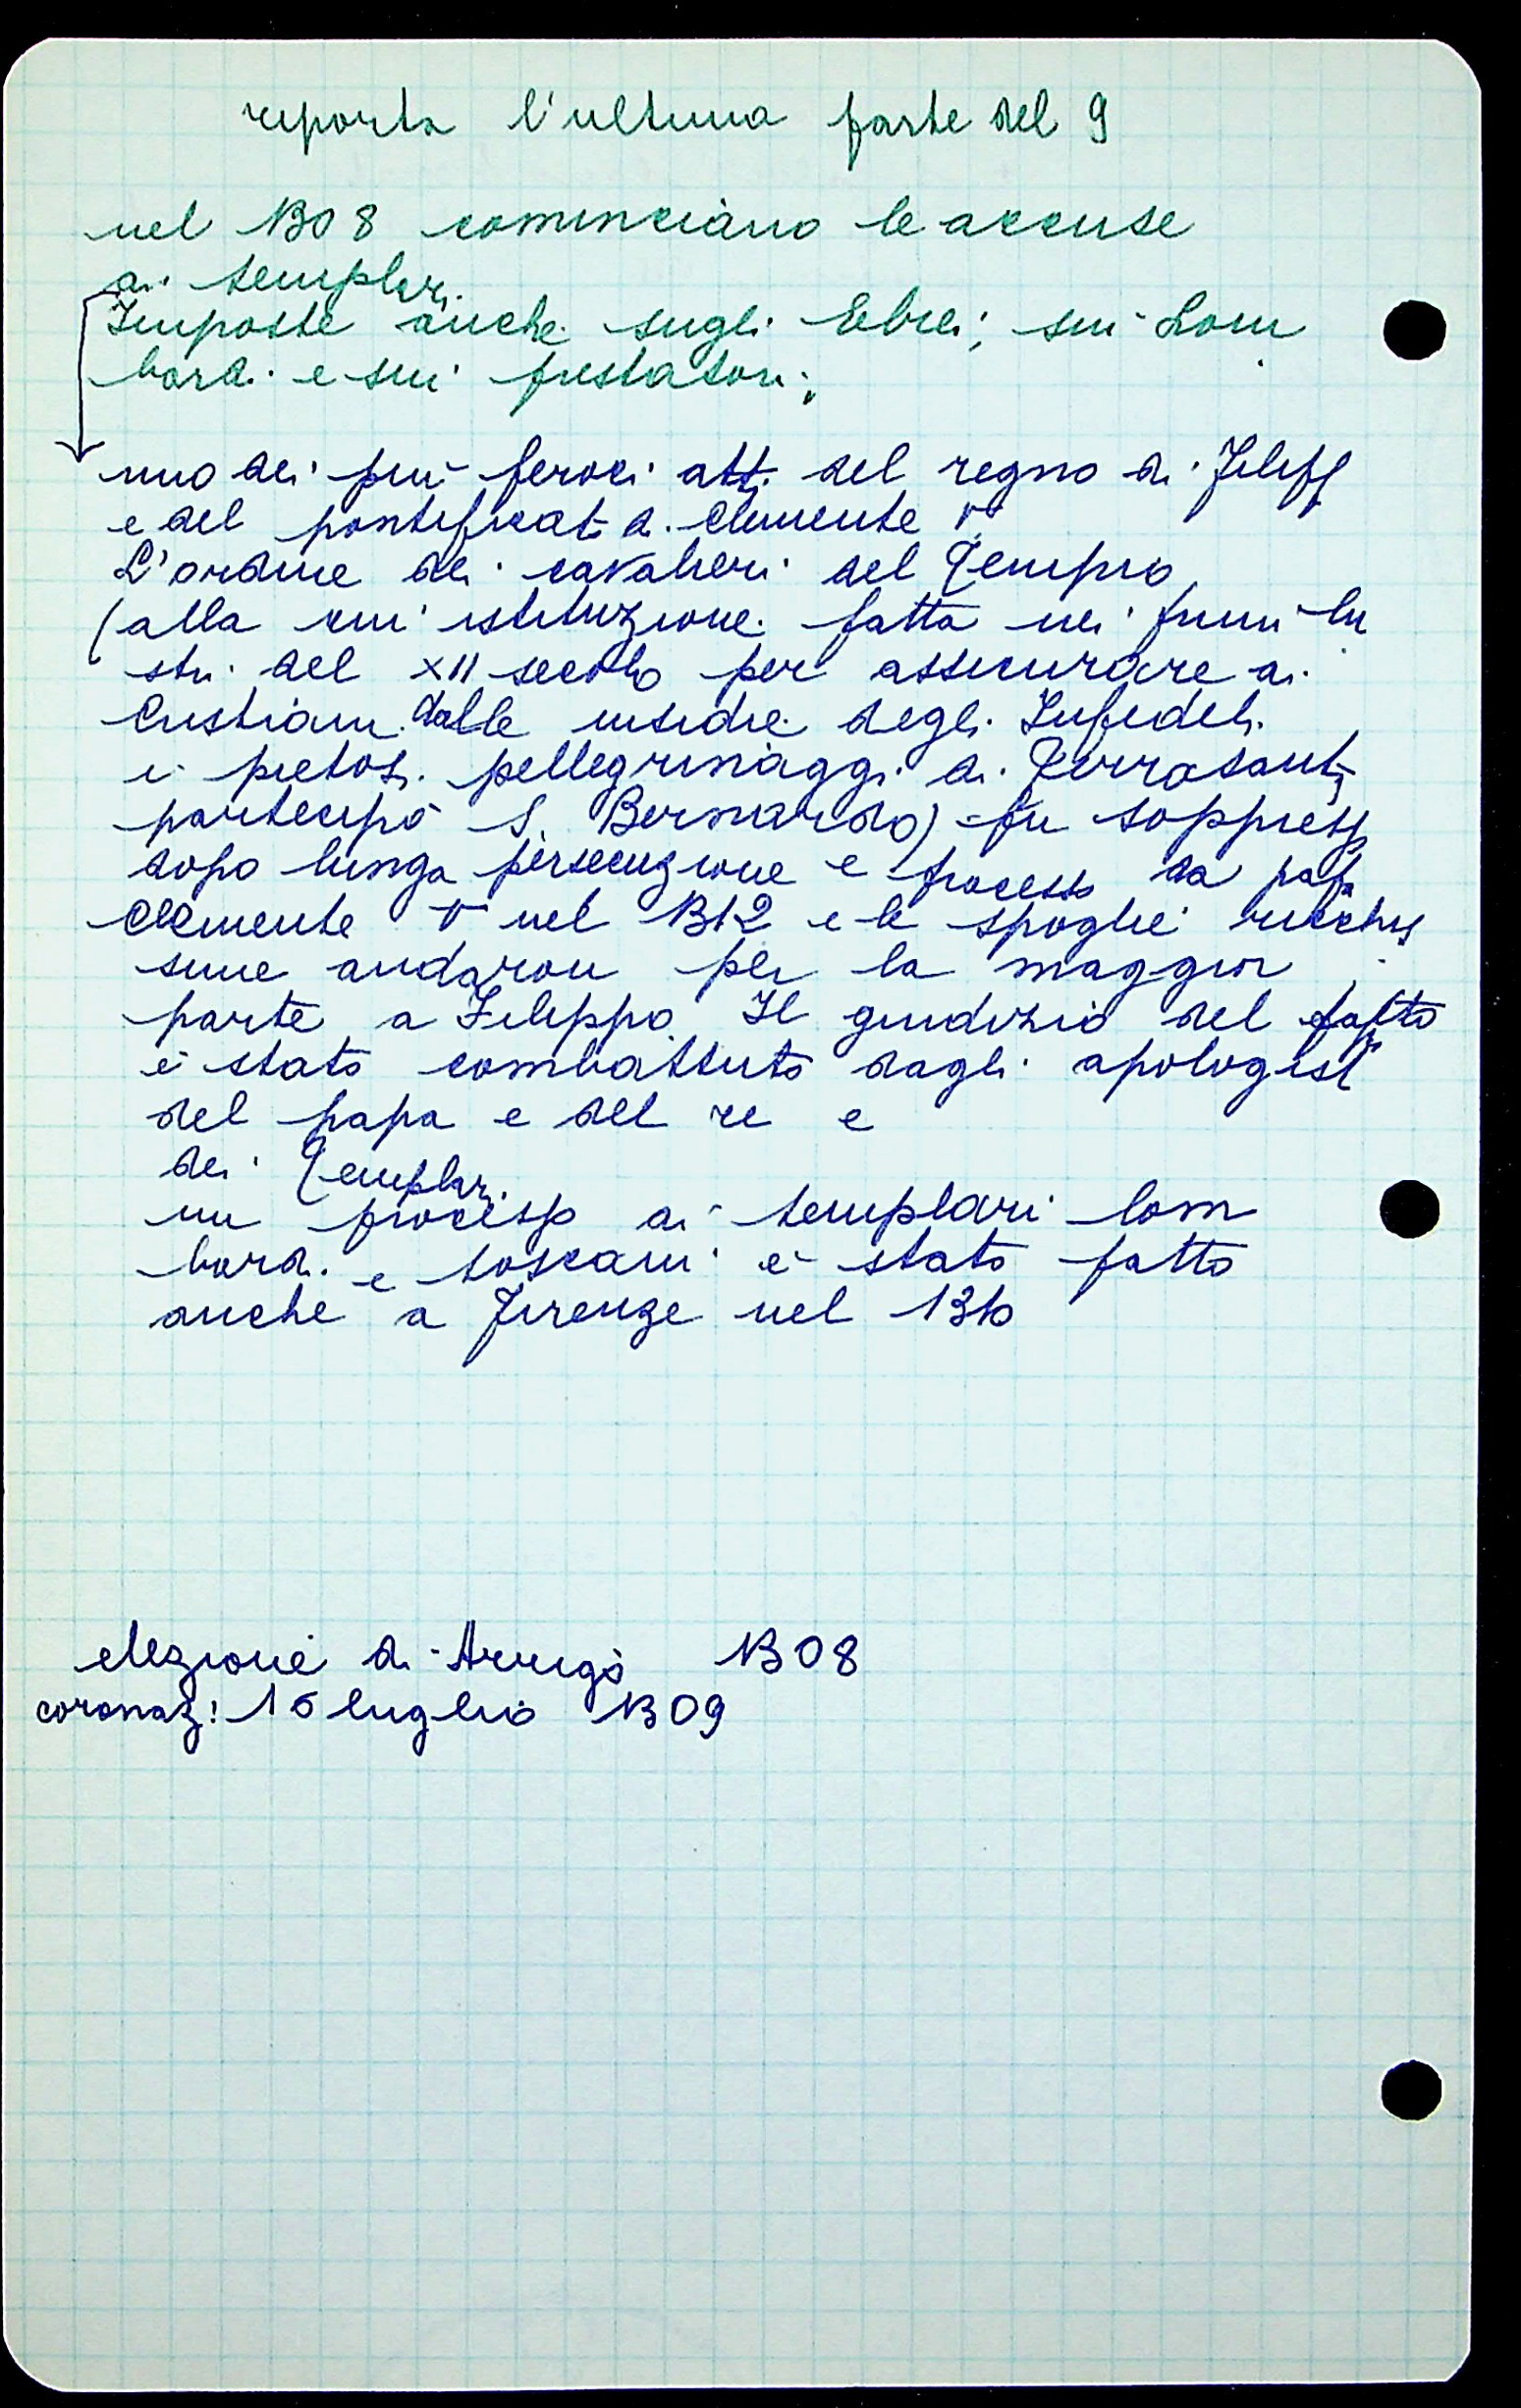 riporta l'ultima parte del 9
nel 1308 cominciano le accuse
ai templari.
Imposte anche sugli Ebrei; sui Lom
bardi e sui prestatori;
uno dei più feroci atti del regno di Filipp
e del pontificato di Clemente V.
L'ordine dei cavalieri del Tempio
(alla cui istituzione fatta nei primi lu
stri del XII secolo per assicurare ai
Cristiani dalle insidie degli Infedeli
i pietosi pellegrinaggi di Terrasanta
partecipò S. Bernardo) fu soppresso
dopo lunga persecuzione e processo da papa
Clemente V nel 1312 e le spoglie ricchis
sime andaron per la maggior
parte a Filippo. Il giudizio del fatto
è stato combattuto dagli apologisti
del papa e del re e
dei Templari.
un processo ai templari lom
bardi e toscani è stato fatto
anche a Firenze nel 1310
elezione di Arrigo 1308
coronaz: 16 luglio 1309